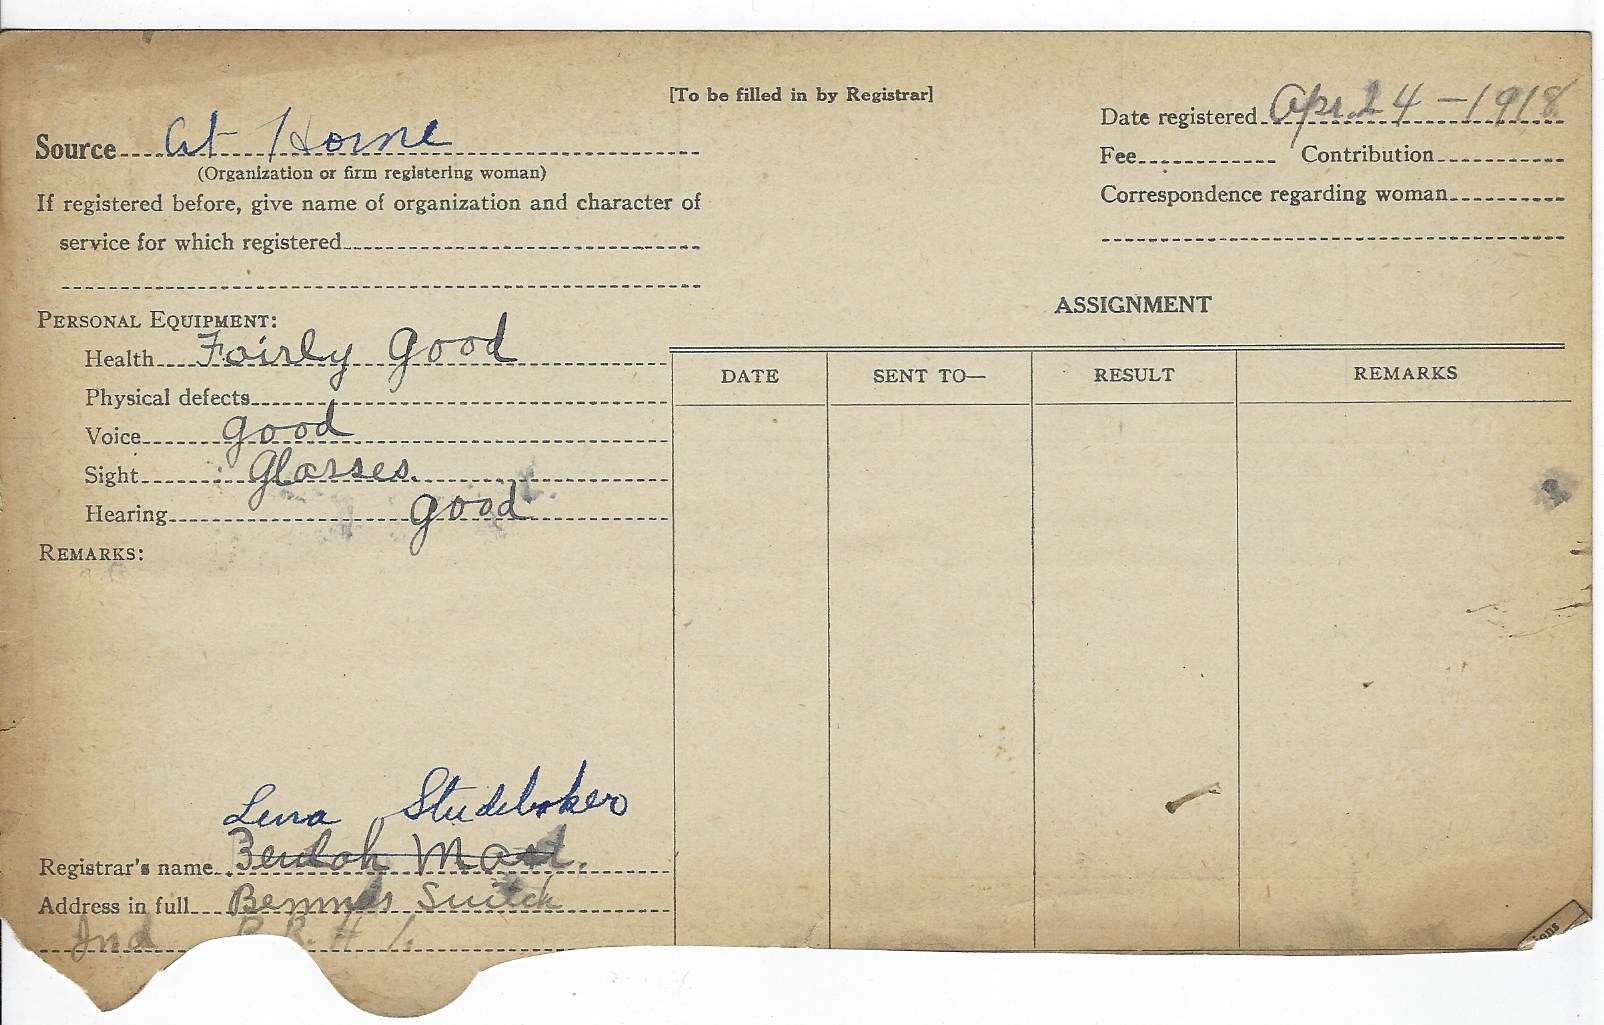 [To be filled in by Registrar]
Source At Home
(Organization or firm registering woman)
If registered before, give name of organization and character of
service for which registered
Date registered Apr. 24 - 1918
Fee Contribution
Correspondence regarding woman
PERSONAL EQUIPMENT:
Health Fairly good
Physical defects
Voice good
Sight Glasses.
Hearing good
REMARKS:
ASSIGNMENT
DATE SENT TO— RESULT REMARKS
Lena Studebaker
Registrar's name Beulah Mast.
Address in full Switch
Ind R.R. # 1.
ions